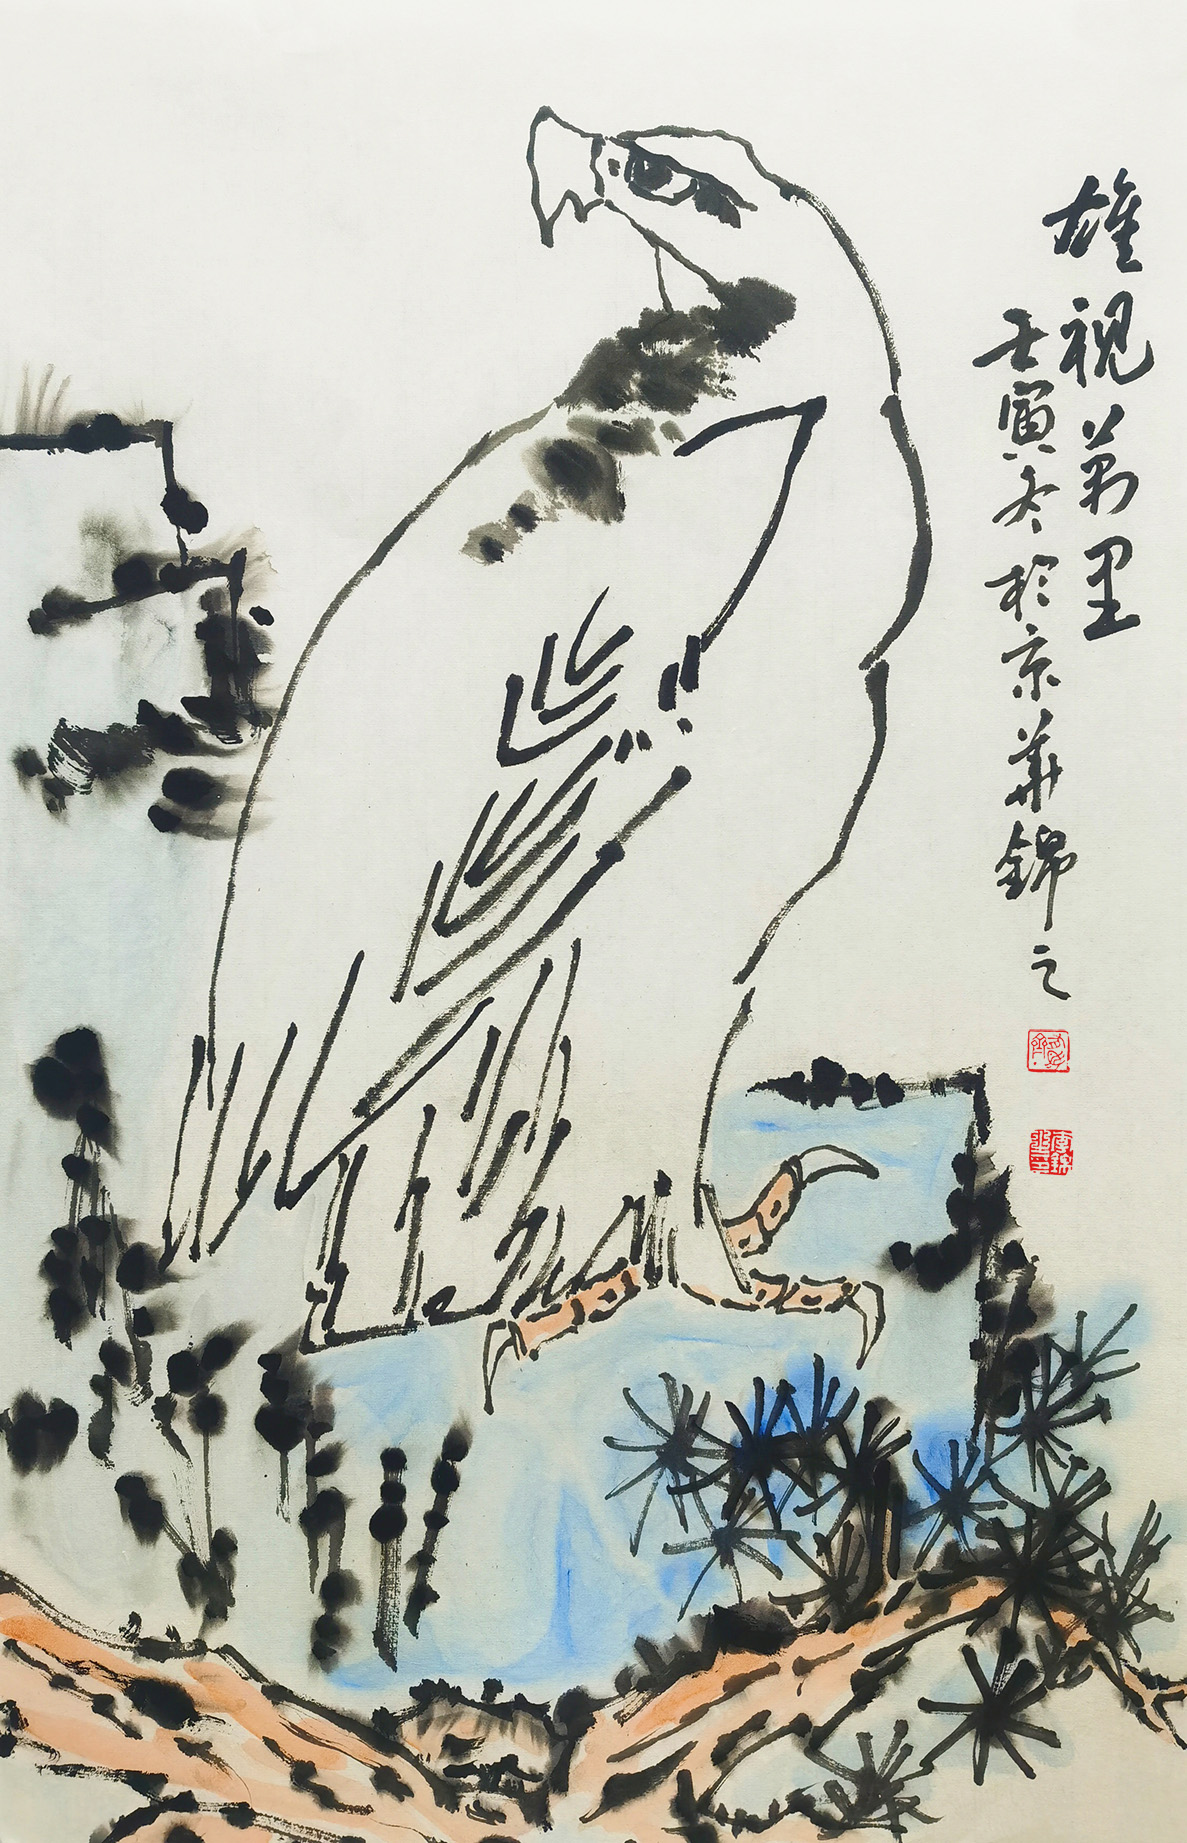 雄视万里
壬寅冬於京華錦之